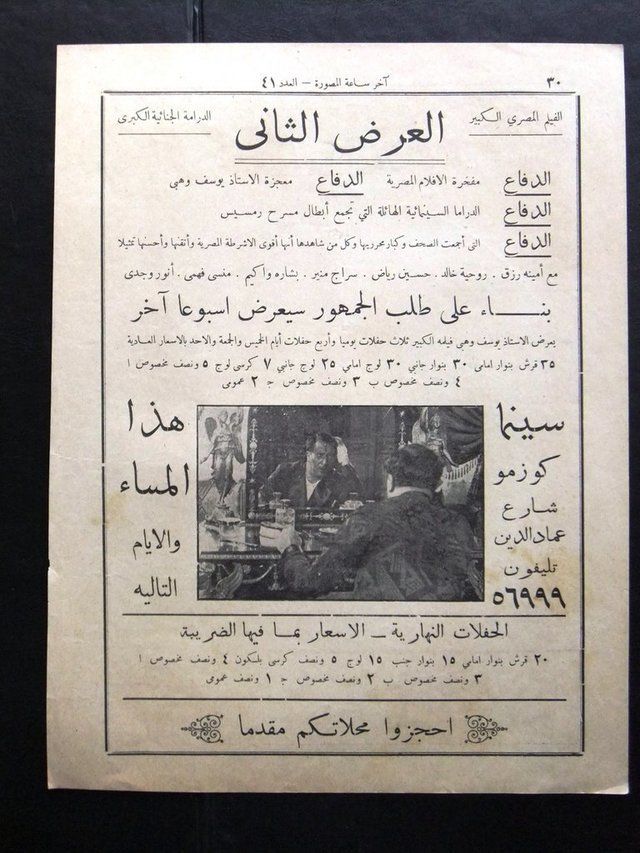 ٣٠
آخر ساعة المصورة – العدد ٤١
الفيلم المصرى الكبير
العرض الثانى
الدرامة الجنائية الكبرى
الدفاع مفخرة الافلام المصرية الدفاع معجزة الاستاذ يوسف وهبى
الدفاع الدراما السينمائية الهائلة التي تجمع أبطال مسرح رمسيس
الدفاع التى أجمعت الصحف وكبار محرريها وكل من شاهدها أنها أقوى الاشرطة المصرية وأتقنها وأحسنها تمثيلا
مع أمينه رزق . روحية خالد . حسين رياض . سراج منير . بشاره واكيم . منسى فهمى . أنور وجدى
بناء على طلب الجمهور سيعرض اسبوعا آخر
يعرض الاستاذ يوسف وهبى فيلمه الكبير ثلاث حفلات يوميا وأربع حفلات أيام الخميس والجمعة والاحد بالاسعار العادية
٣٥ قرش بنوار امامى ٣٠ بنوار جانبي ٣٠ لوج امامي ٢٥ لوج جانبي ٧ كرسى لوج ٥ ونصف مخصوص ا
٤ ونصف مخصوص ب ٣ ونصف مخصوص ج ٢ عمومى
سينما
كوزمو
شارع
عماد الدين
تليفون
٥٦٩٩٩
هذا
المساء
والايام
التاليه
الحفلات النهارية – الاسعار بما فيها الضريبة
٢٠ قرش بنوار امامي ١٥ بنوار جنب ١٥ لوج ٥ ونصف كرسى بلكون ٤ ونصف مخصوص ا
٣ ونصف مخصوص ب ٢ ونصف مخصوص ج ١ ونصف عمومى
احجزوا محلاتكم مقدما